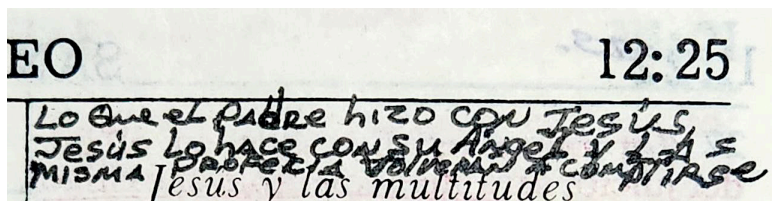 EO 12:25
Lo que el PAdRe hIZO CON Jesús,
Jesús Lo hACe CON SU ÁNgeL Y LAS
MISMA PROFECIA VOLVERAN A COMPLIRSE
Jesús y las multitudes